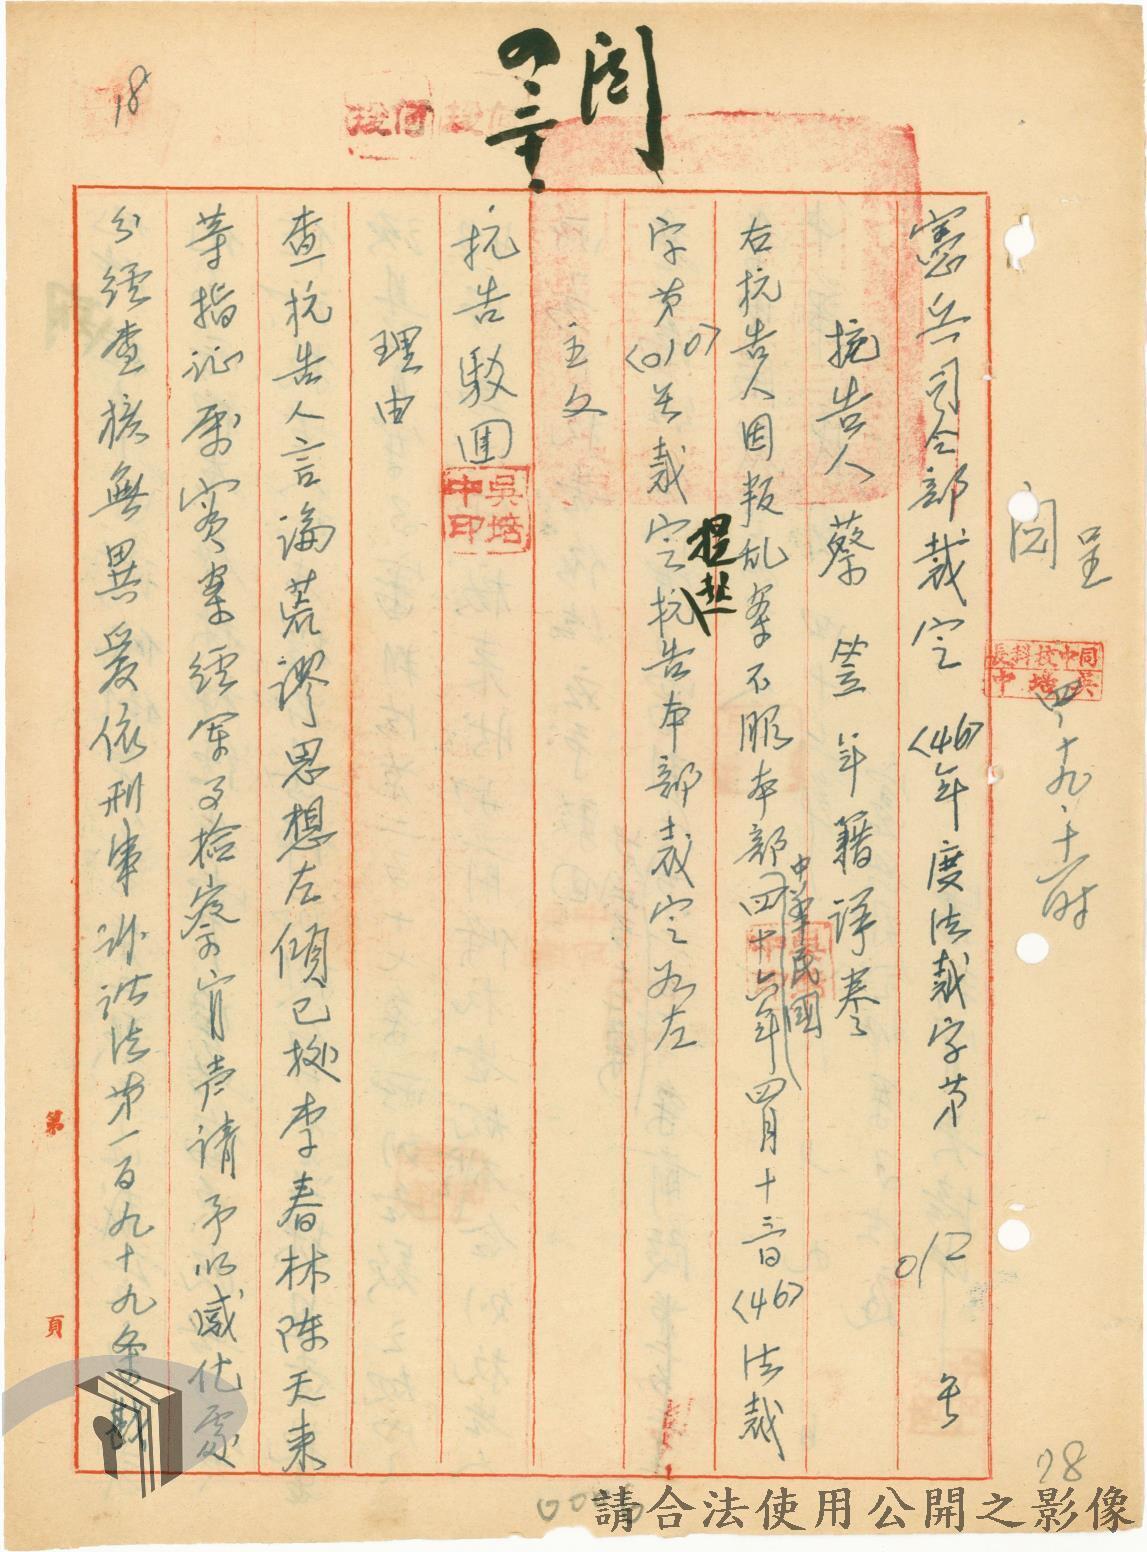 呈
閱
四、十九、十一时
同中校科長
吳培中
憲兵司令部裁定 〈46〉年度法裁字第 012 号
抗告人 蔡 筌 年籍详卷
右抗告人因叛乱案不服本部中華民國四十六年四月十三日〈46〉法裁
字第〈010〉号裁定提起抗告本部裁定如左
主文
抗告駁囬
吳培中印
理由
查抗告人言論荒謬思想左傾已挻李春林陈天来
等指证属实案经军事检察官声请予以感化處
分经查核無異爰依刑事诉訟法第一百九十九条
閱
四、三十、
18
第 頁
78
請合法使用公開之影像